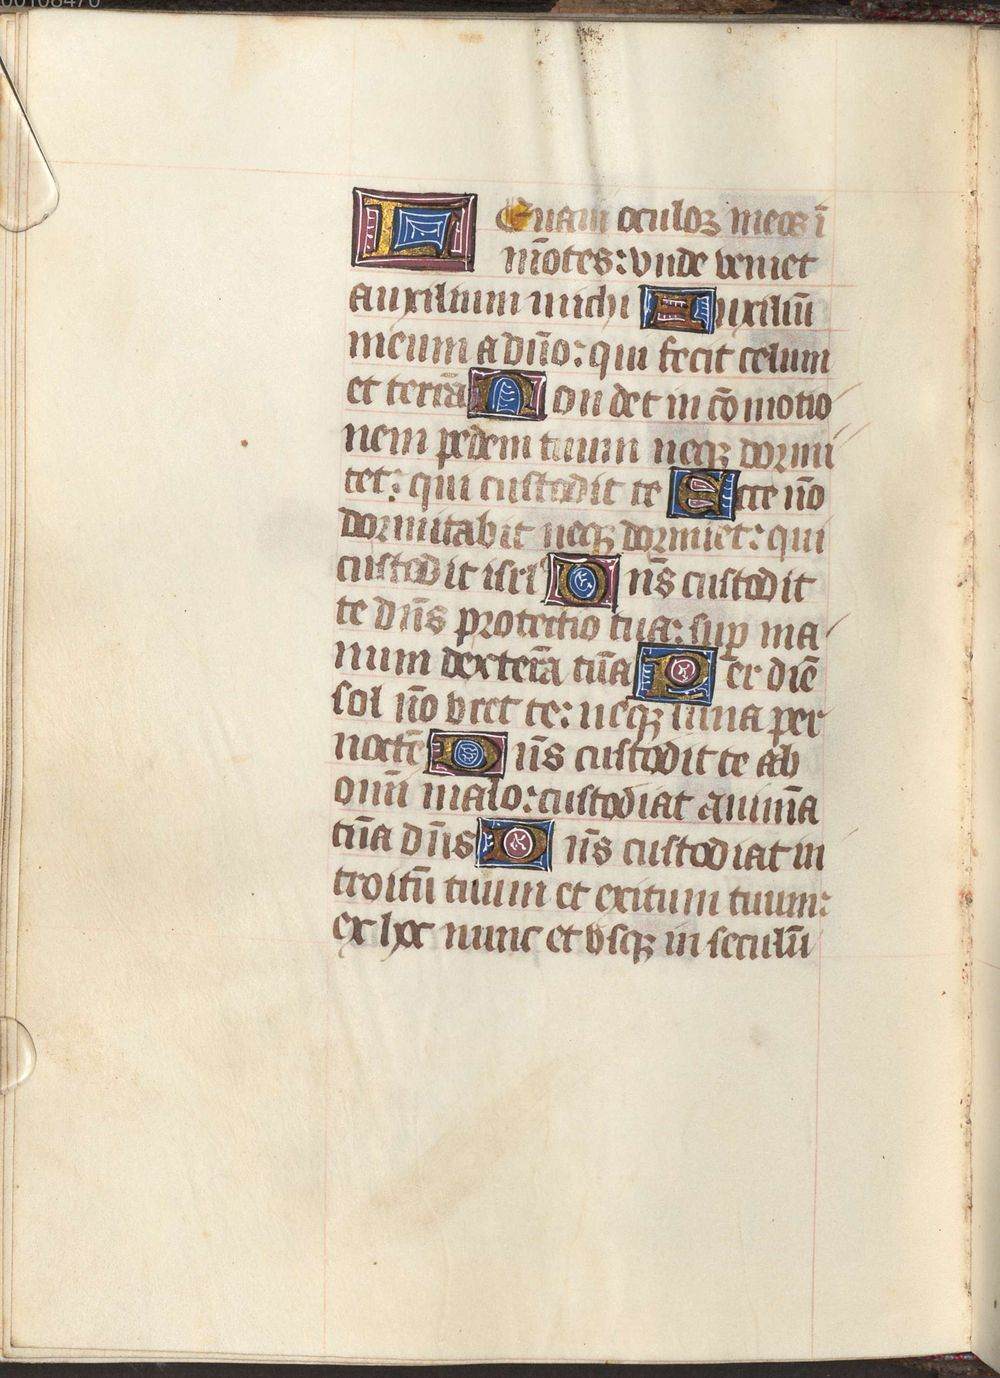 LEuam oculoꝝ meos ī
mōtes: vnde veniet
auxilium michi Auxiliū
meum a dn̄o: qui fecit celum
et terrā Non det in cōmotio
nem pedem tuum neqꝫ dormi
tet: qui custodit te Ecce nō
dormitabit neqꝫ dormiet: qui
custodit isrl̄ Dn̄s custodit
te dn̄s protectio tua: sup ma
num dexterā tuā Per diē
sol nō vret te: neqꝫ luna per
noctē Dn̄s custodit te ab
omī malo: custodiat animā
tuā dn̄s Dn̄s custodiat in
troitū tuum et exitum tuum:
ex hoc nunc et vsqꝫ in seculū